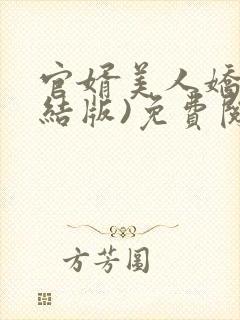 官婿美人嬌
結版)免費閱
方芳圓